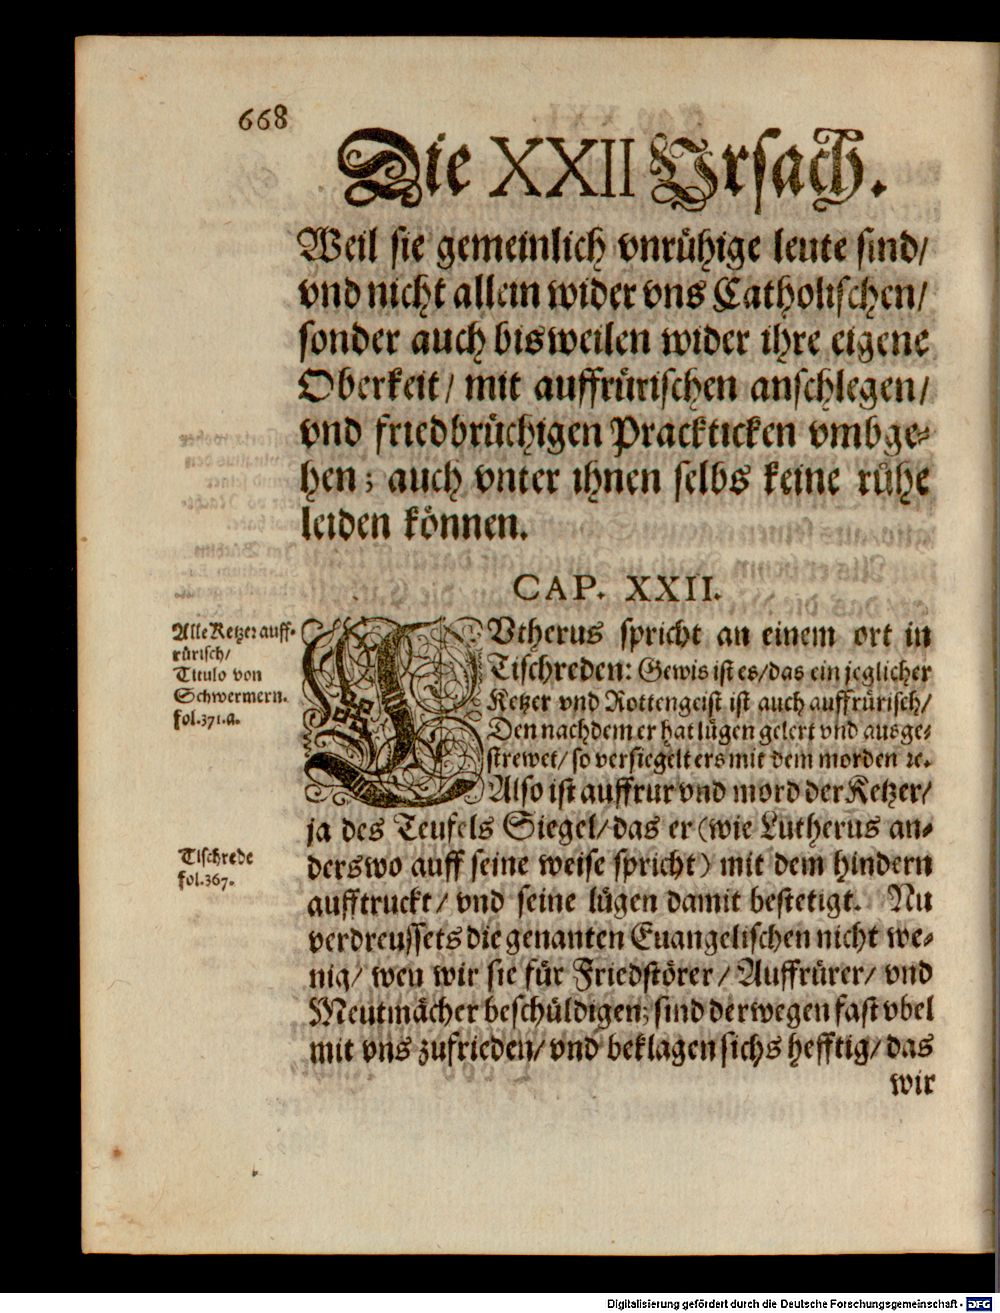 668
Die XXII Vrsach.
Weil sie gemeinlich vnrühige leute sind/
vnd nicht allein wider vns Catholischen/
sonder auch bisweilen wider ihre eigene
Oberkeit/ mit auffrürischen anschlegen/
vnd friedbrüchigen Prackticken vmbge-
hen; auch vnter ihnen selbs keine rühe
leiden können.
CAP. XXII.
Alle Ketzer auff-
rürisch/
Titulo von
Schwermern.
fol.371.a.
LVtherus spricht an einem ort in
Tischreden: Gewis ist es/das ein jeglicher
Ketzer vnd Rottengeist ist auch auffrürisch/
Den nachdem er hat lügen gelert vnd ausge-
strewet/ so versiegelt ers mit dem morden ꝛc.
Also ist auffrur vnd mord der Ketzer/
ja des Teufels Siegel/das er (wie Lutherus an-
Tischrede
fol.367.
derswo auff seine weise spricht) mit dem hindern
aufftruckt/ vnd seine lügen damit bestetigt. Nu
verdreussets die genanten Euangelischen nicht we-
nig/ wen wir sie für Friedstörer/ Auffrürer/ vnd
Meutmächer beschüldigen; sind derwegen fast vbel
mit vns zufrieden/ vnd beklagen sichs hefftig/ das
wir
Digitalisierung gefördert durch die Deutsche Forschungsgemeinschaft - DFG